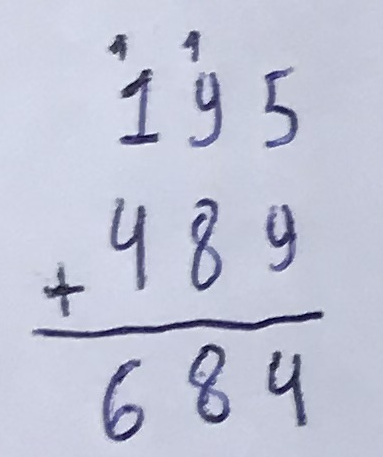 1 1
195
+ 489
684